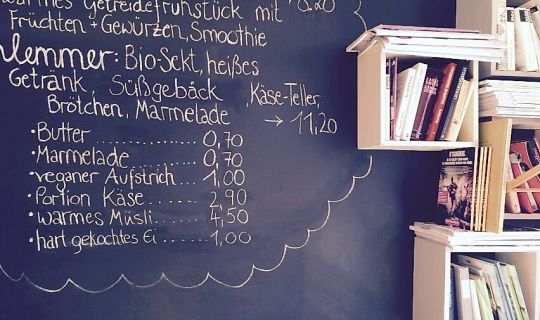 warmes Getreidefrühstück mit
Früchten + Gewürzen, Smoothie
lemmer: Bio-Sekt, heißes
Getränk, Süßgebäck, Käse-Teller,
Brötchen, Marmelade → 11,20
• Butter .............. 0,70
• Marmelade ........ 0,70
• veganer Aufstrich ... 1,00
• Portion Käse ...... 2,90
• warmes Müsli ..... 4,50
• hart gekochtes Ei ..... 1,00